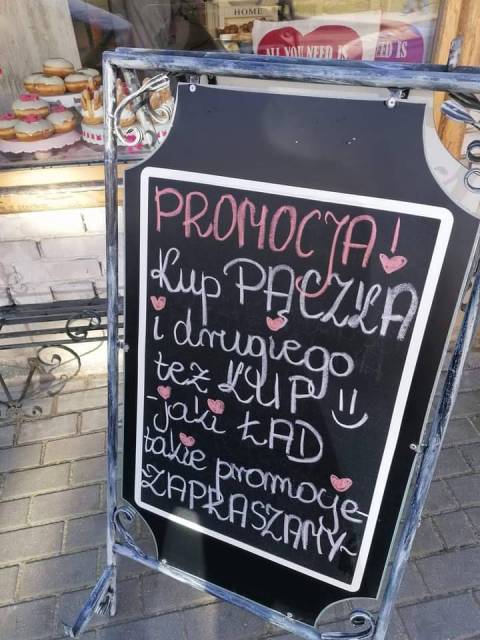 HOME
ALL YOU NEED IS
ED IS
PROMOCJA!
Kup PĄCZKA
i drugiego
też KUP
- jaki ŁAD
takie promocje
ZAPRASZAMY~